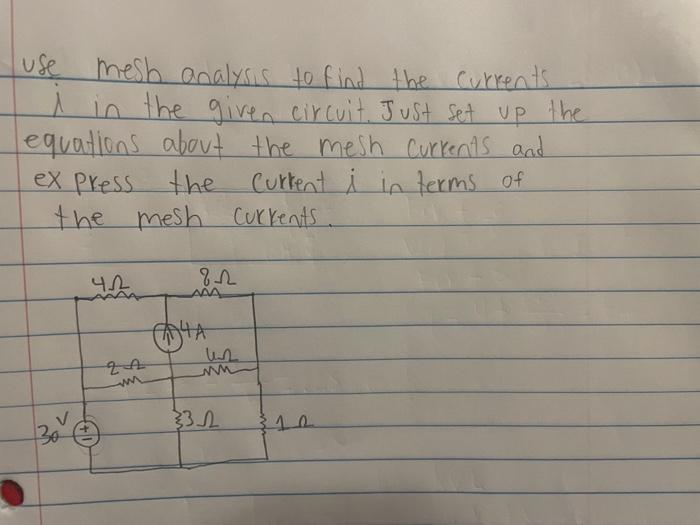 use mesh analysis to find the currents
i in the given circuit. Just set up the
equations about the mesh currents and
express the current i in terms of
the mesh currents.
4Ω 8Ω
4A
2Ω
30V 3Ω 1Ω